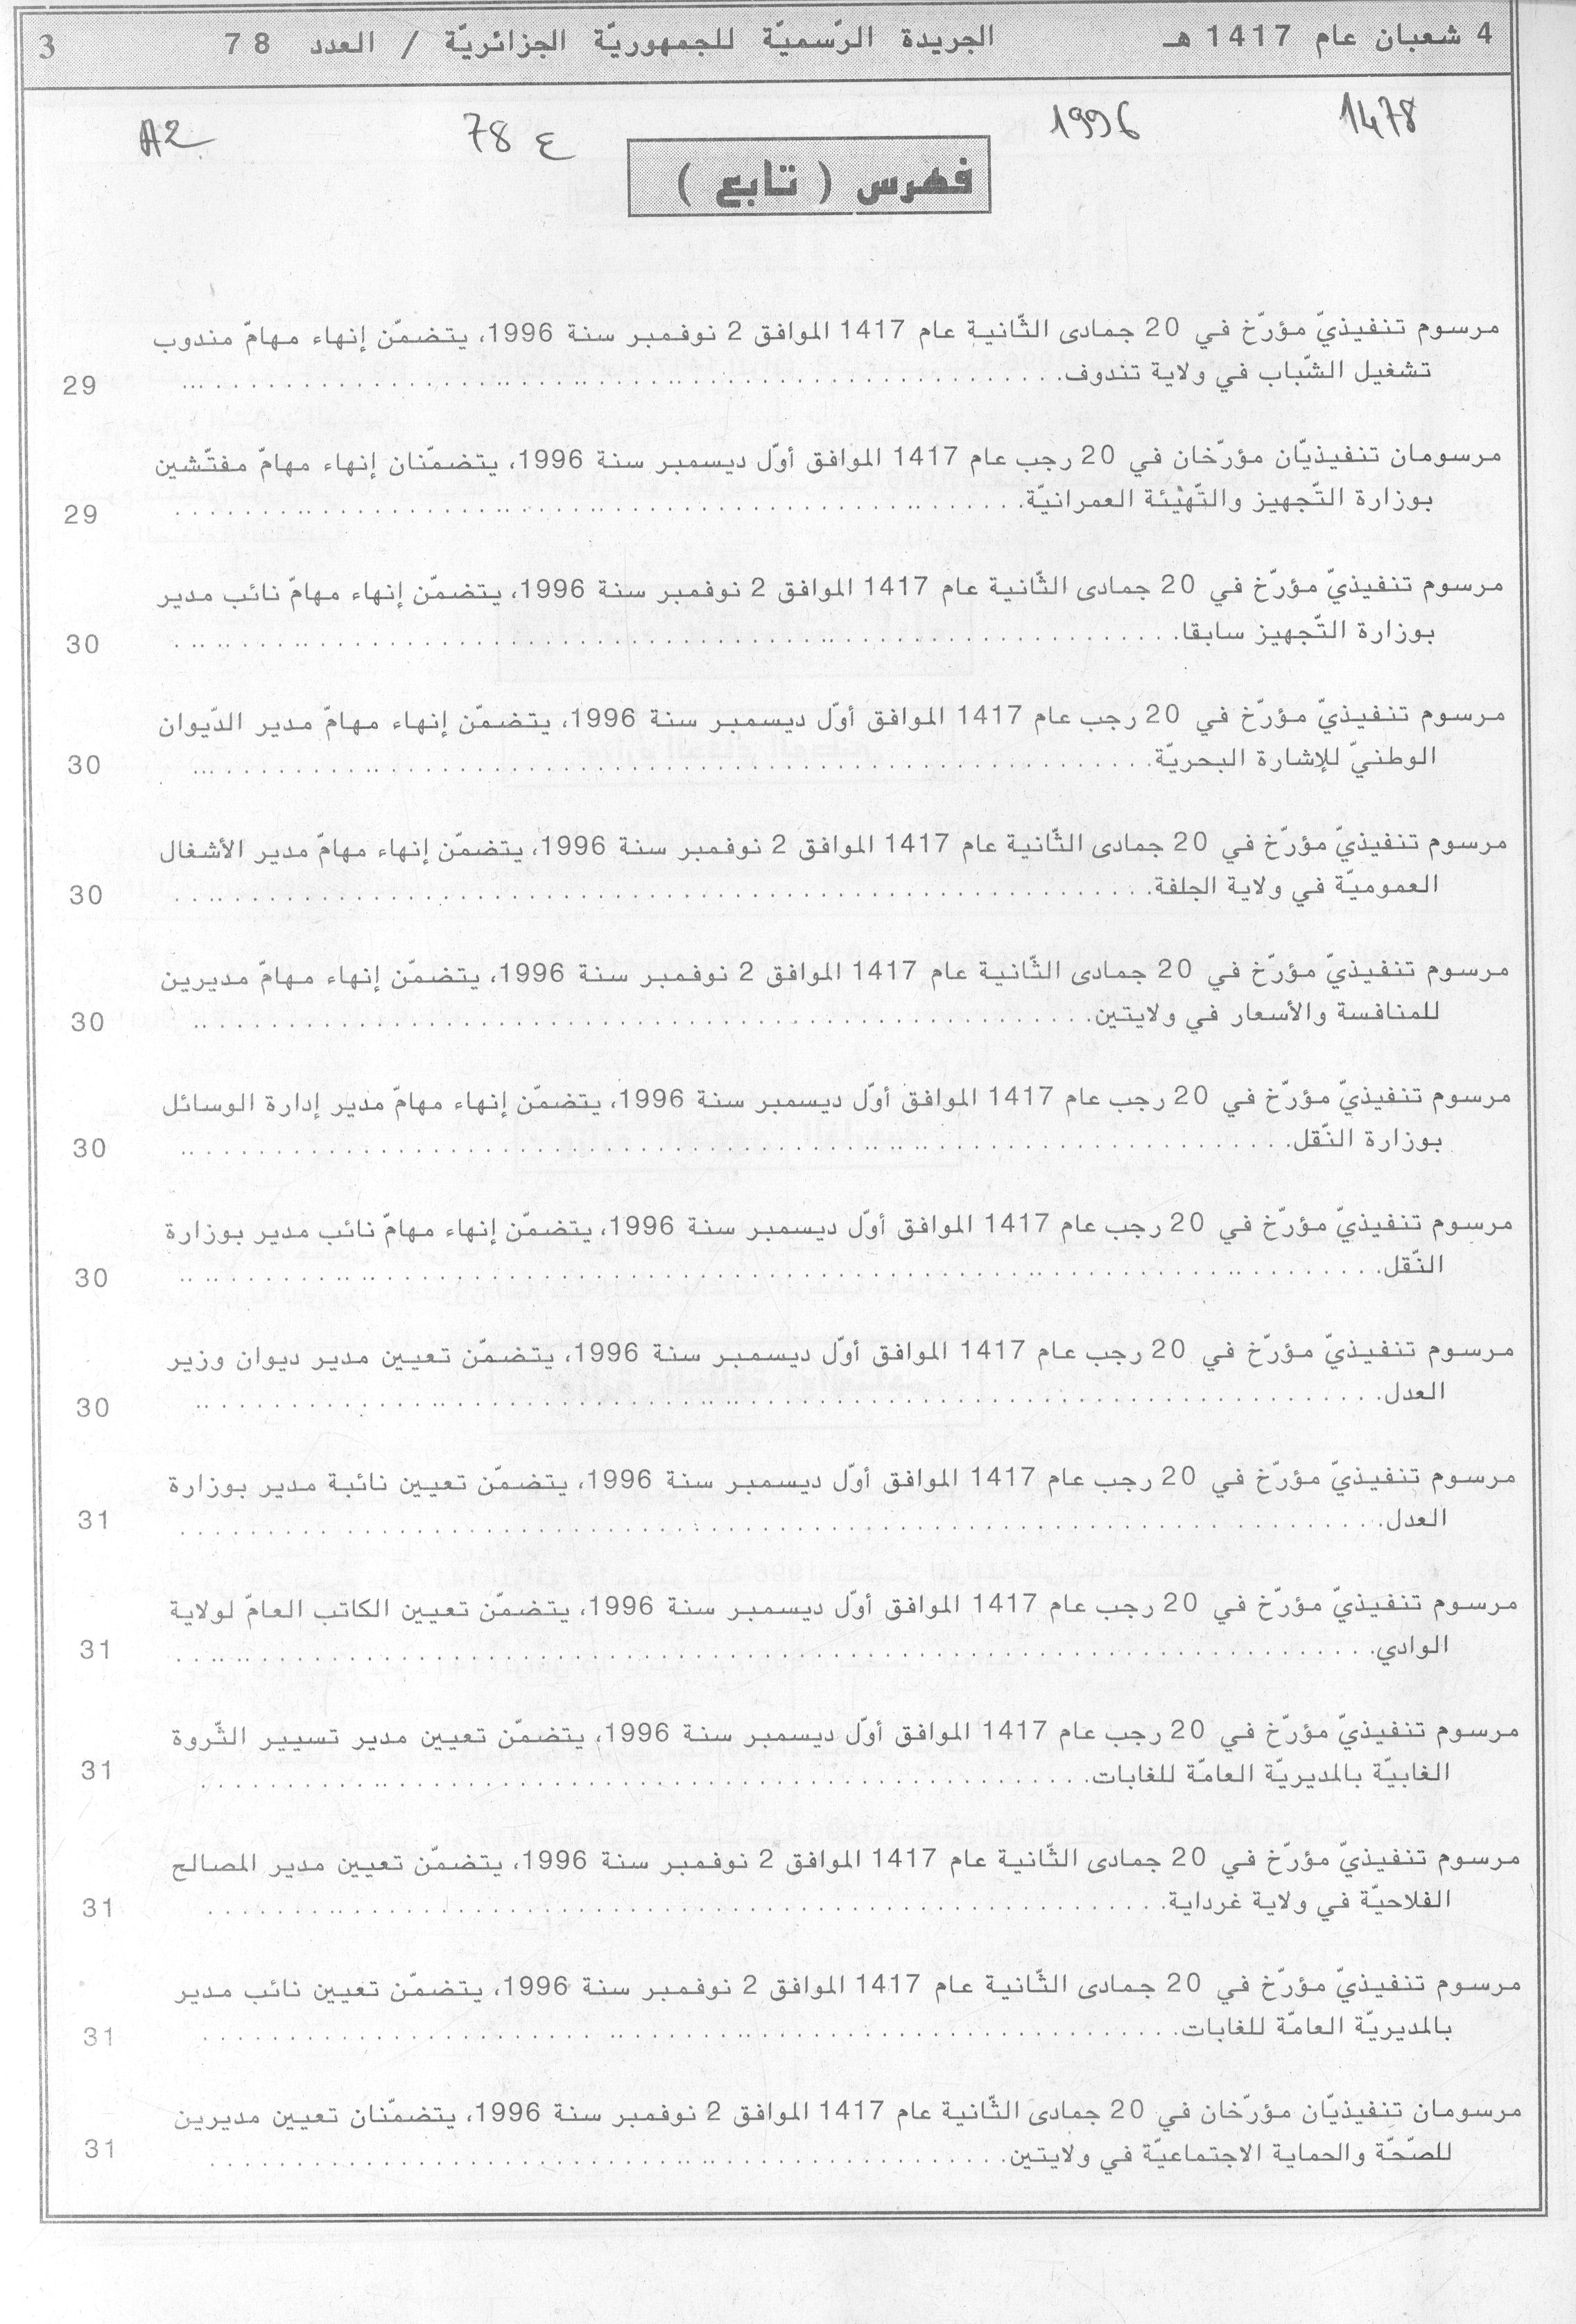 4 شعبان عام 1417 هـ الجريدة الرّسميّة للجمهوريّة الجزائريّة / العدد 78 3
1478 1996 78 ع A2
فهرس ( تابع )
مرسوم تنفيذيّ مؤرّخ في 20 جمادى الثّانية عام 1417 الموافق 2 نوفمبر سنة 1996، يتضمّن إنهاء مهامّ مندوب
تشغيل الشّباب في ولاية تندوف. 29
مرسومان تنفيذيّان مؤرّخان في 20 رجب عام 1417 الموافق أوّل ديسمبر سنة 1996، يتضمّنان إنهاء مهامّ مفتّشين
بوزارة التّجهيز والتّهيئة العمرانيّة. 29
مرسوم تنفيذيّ مؤرّخ في 20 جمادى الثّانية عام 1417 الموافق 2 نوفمبر سنة 1996، يتضمّن إنهاء مهامّ نائب مدير
بوزارة التّجهيز سابقا. 30
مرسوم تنفيذيّ مؤرّخ في 20 رجب عام 1417 الموافق أوّل ديسمبر سنة 1996، يتضمّن إنهاء مهامّ مدير الدّيوان
الوطنيّ للإشارة البحريّة. 30
مرسوم تنفيذيّ مؤرّخ في 20 جمادى الثّانية عام 1417 الموافق 2 نوفمبر سنة 1996، يتضمّن إنهاء مهامّ مدير الأشغال
العموميّة في ولاية الجلفة. 30
مرسوم تنفيذيّ مؤرّخ في 20 جمادى الثّانية عام 1417 الموافق 2 نوفمبر سنة 1996، يتضمّن إنهاء مهامّ مديرين
للمنافسة والأسعار في ولايتين. 30
مرسوم تنفيذيّ مؤرّخ في 20 رجب عام 1417 الموافق أوّل ديسمبر سنة 1996، يتضمّن إنهاء مهامّ مدير إدارة الوسائل
بوزارة النّقل. 30
مرسوم تنفيذيّ مؤرّخ في 20 رجب عام 1417 الموافق أوّل ديسمبر سنة 1996، يتضمّن إنهاء مهامّ نائب مدير بوزارة
النّقل. 30
مرسوم تنفيذيّ مؤرّخ في 20 رجب عام 1417 الموافق أوّل ديسمبر سنة 1996، يتضمّن تعيين مدير ديوان وزير
العدل. 30
مرسوم تنفيذيّ مؤرّخ في 20 رجب عام 1417 الموافق أوّل ديسمبر سنة 1996، يتضمّن تعيين نائبة مدير بوزارة
العدل. 31
مرسوم تنفيذيّ مؤرّخ في 20 رجب عام 1417 الموافق أوّل ديسمبر سنة 1996، يتضمّن تعيين الكاتب العامّ لولاية
الوادي. 31
مرسوم تنفيذيّ مؤرّخ في 20 رجب عام 1417 الموافق أوّل ديسمبر سنة 1996، يتضمّن تعيين مدير تسيير الثّروة
الغابيّة بالمديريّة العامّة للغابات. 31
مرسوم تنفيذيّ مؤرّخ في 20 جمادى الثّانية عام 1417 الموافق 2 نوفمبر سنة 1996، يتضمّن تعيين مدير المصالح
الفلاحيّة في ولاية غرداية. 31
مرسوم تنفيذيّ مؤرّخ في 20 جمادى الثّانية عام 1417 الموافق 2 نوفمبر سنة 1996، يتضمّن تعيين نائب مدير
بالمديريّة العامّة للغابات. 31
مرسومان تنفيذيّان مؤرّخان في 20 جمادى الثّانية عام 1417 الموافق 2 نوفمبر سنة 1996، يتضمّنان تعيين مديرين
للصّحّة والحماية الاجتماعيّة في ولايتين. 31